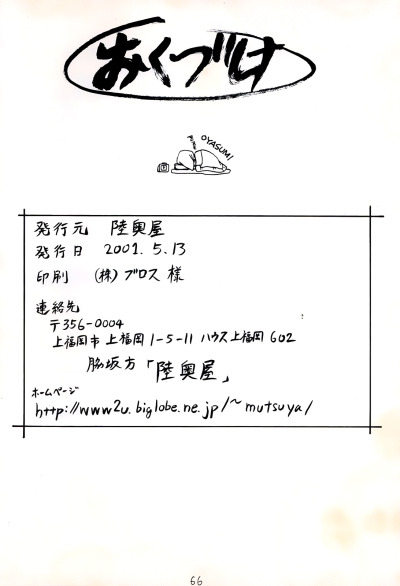 おくづけ
OYASUMI
発行元 陸奥屋
発行日 2001.5.13
印刷 (株)ブロス 様
連絡先
〒356-0004
上福岡市上福岡1-5-11 ハウス上福岡602
脇坂方「陸奥屋」
ホームページ
http://www2u.biglobe.ne.jp/~mutsuya/
66